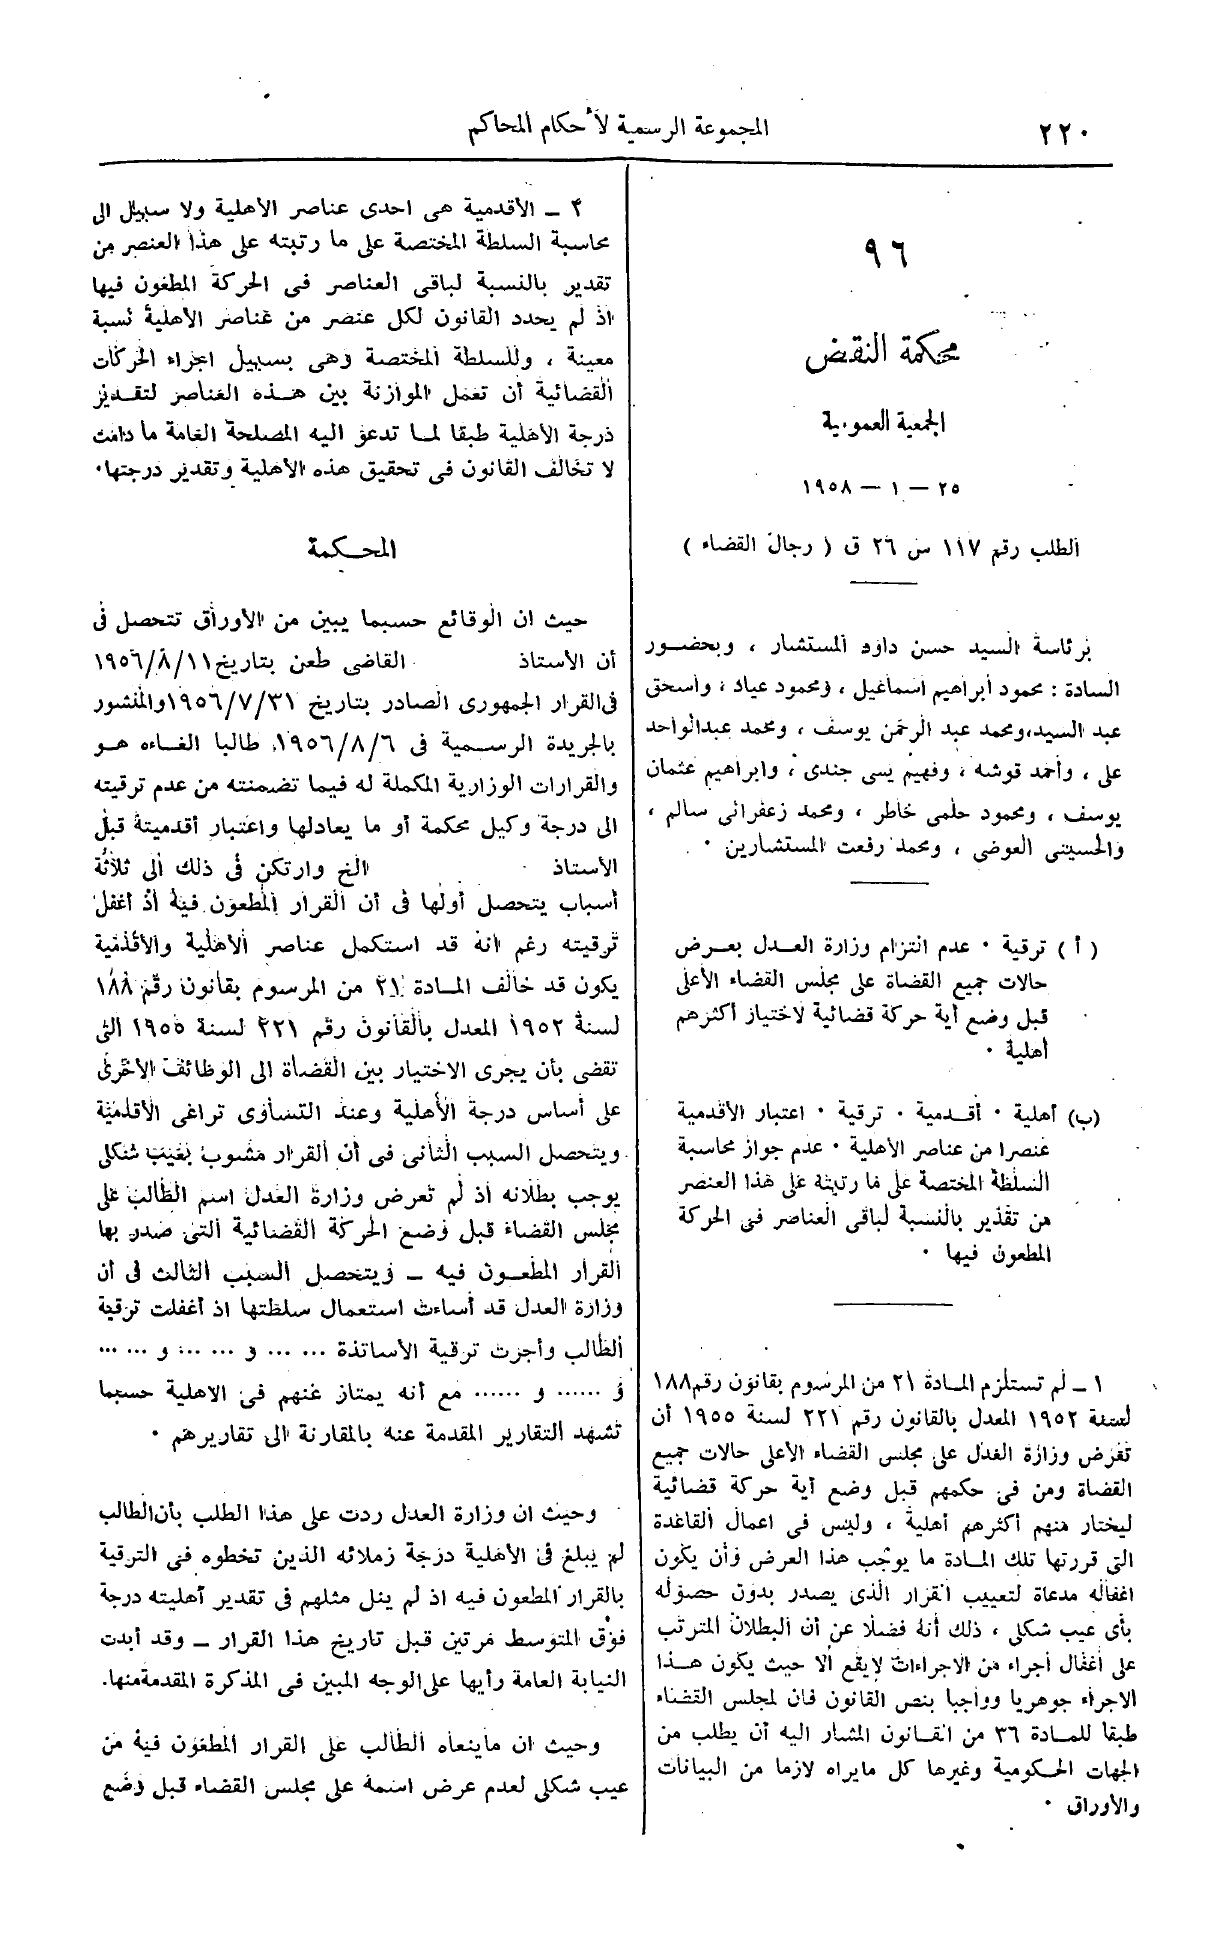 ٢٢٠
المجموعة الرسمية لأحكام المحاكم
٩٦
محكمة النقض
الجمعية العمومية
٢٥ – ١ – ١٩٥٨
الطلب رقم ١١٧ س ٢٦ ق ( رجال القضاء )
برئاسة السيد حسن داود المستشار ، وبحضور
السادة : محمود أبراهيم اسماعيل ، ومحمود عياد ، وأسحق
عبد السيد، ومحمد عبد الرحمن يوسف ، ومحمد عبدالواحد
على ، وأحمد قوشه ، وفهيم يسى جندى ، وابراهيم عثمان
يوسف ، ومحمود حلمى خاطر ، ومحمد زعفرانى سالم ،
والحسينى العوضى ، ومحمد رفعت المستشارين ٠
( أ ) ترقية ٠ عدم التزام وزارة العدل بعرض
حالات جميع القضاة على مجلس القضاء الأعلى
قبل وضع أية حركة قضائية لاختيار أكثرهم
أهلية ٠
(ب) أهلية ٠ أقدمية ٠ ترقية ٠ اعتبار الأقدمية
عنصرا من عناصر الأهلية ٠ عدم جواز محاسبة
السلطة المختصة على ما رتبته على هذا العنصر
من تقدير بالنسبة لباقى العناصر فى الحركة
المطعون فيها ٠
١ – لم تستلزم المادة ٢١ من المرسوم بقانون رقم ١٨٨
لسنة ١٩٥٢ المعدل بالقانون رقم ٢٢١ لسنة ١٩٥٥ أن
تعرض وزارة العدل على مجلس القضاء الأعلى حالات جميع
القضاة ومن فى حكمهم قبل وضع أية حركة قضائية
ليختار منهم أكثرهم أهلية ، وليس فى اعمال القاعدة
التى قررتها تلك المادة ما يوجب هذا العرض وأن يكون
اغفاله مدعاة لتعييب القرار الذى يصدر بدون حصوله
بأى عيب شكلى ، ذلك أنه فضلا عن أن البطلان المترتب
على أغفال أجراء من الاجراءات لايقع الا حيث يكون هذا
الاجراء جوهريا وواجبا بنص القانون فان لمجلس القضاء
طبقا للمادة ٣٦ من القانون المشار اليه أن يطلب من
الجهات الحكومية وغيرها كل مايراه لازما من البيانات
والأوراق ٠
٢ – الأقدمية هى احدى عناصر الأهلية ولا سبيل الى
محاسبة السلطة المختصة على ما رتبته على هذا العنصر من
تقدير بالنسبة لباقى العناصر فى الحركة المطعون فيها
اذ لم يحدد القانون لكل عنصر من عناصر الأهلية نسبة
معينة ، وللسلطة المختصة وهى بسبيل اجراء الحركات
القضائية أن تعمل الموازنة بين هذه العناصر لتقدير
درجة الأهلية طبقا لما تدعو اليه المصلحة العامة ما دامت
لا تخالف القانون فى تحقيق هذه الأهلية وتقدير درجتها٠
المحكمة
حيث ان الوقائع حسبما يبين من الأوراق تتحصل فى
أن الأستاذ القاضى طعن بتاريخ ١١/٨/١٩٥٦
فى القرار الجمهورى الصادر بتاريخ ٣١/٧/١٩٥٦ والمنشور
بالجريدة الرسمية فى ٦/٨/١٩٥٦ طالبا الغاءه هو
والقرارات الوزارية المكملة له فيما تضمنته من عدم ترقيته
الى درجة وكيل محكمة أو ما يعادلها واعتبار أقدميته قبل
الأستاذ الخ وارتكن فى ذلك الى ثلاثة
أسباب يتحصل أولها فى أن القرار المطعون فيه اذ أغفل
ترقيته رغم انه قد استكمل عناصر الأهلية والأقدمية
يكون قد خالف المادة ٢١ من المرسوم بقانون رقم ١٨٨
لسنة ١٩٥٢ المعدل بالقانون رقم ٢٢١ لسنة ١٩٥٥ التى
تقضى بأن يجرى الاختيار بين القضاة الى الوظائف الأخرى
على أساس درجة الأهلية وعند التساوى تراعى الأقدمية
ويتحصل السبب الثانى فى أن القرار مشوب بعيب شكلى
يوجب بطلانه اذ لم تعرض وزارة العدل اسم الطالب على
مجلس القضاء قبل وضع الحركة القضائية التى صدر بها
القرار المطعون فيه – ويتحصل السبب الثالث فى أن
وزارة العدل قد أساءت استعمال سلطتها اذ أغفلت ترقية
الطالب وأجرت ترقية الأساتذة ... ... و ... ... و ... ...
و ...... و ...... مع أنه يمتاز عنهم فى الاهلية حسبما
تشهد التقارير المقدمة عنه بالمقارنة الى تقاريرهم ٠
وحيث ان وزارة العدل ردت على هذا الطلب بأن الطالب
لم يبلغ فى الأهلية درجة زملائه الذين تخطوه فى الترقية
بالقرار المطعون فيه اذ لم ينل مثلهم فى تقدير أهليته درجة
فوق المتوسط مرتين قبل تاريخ هذا القرار – وقد أبدت
النيابة العامة رأيها على الوجه المبين فى المذكرة المقدمة منها.
وحيث ان ماينعاه الطالب على القرار المطعون فيه من
عيب شكلى لعدم عرض اسمه على مجلس القضاء قبل وضع